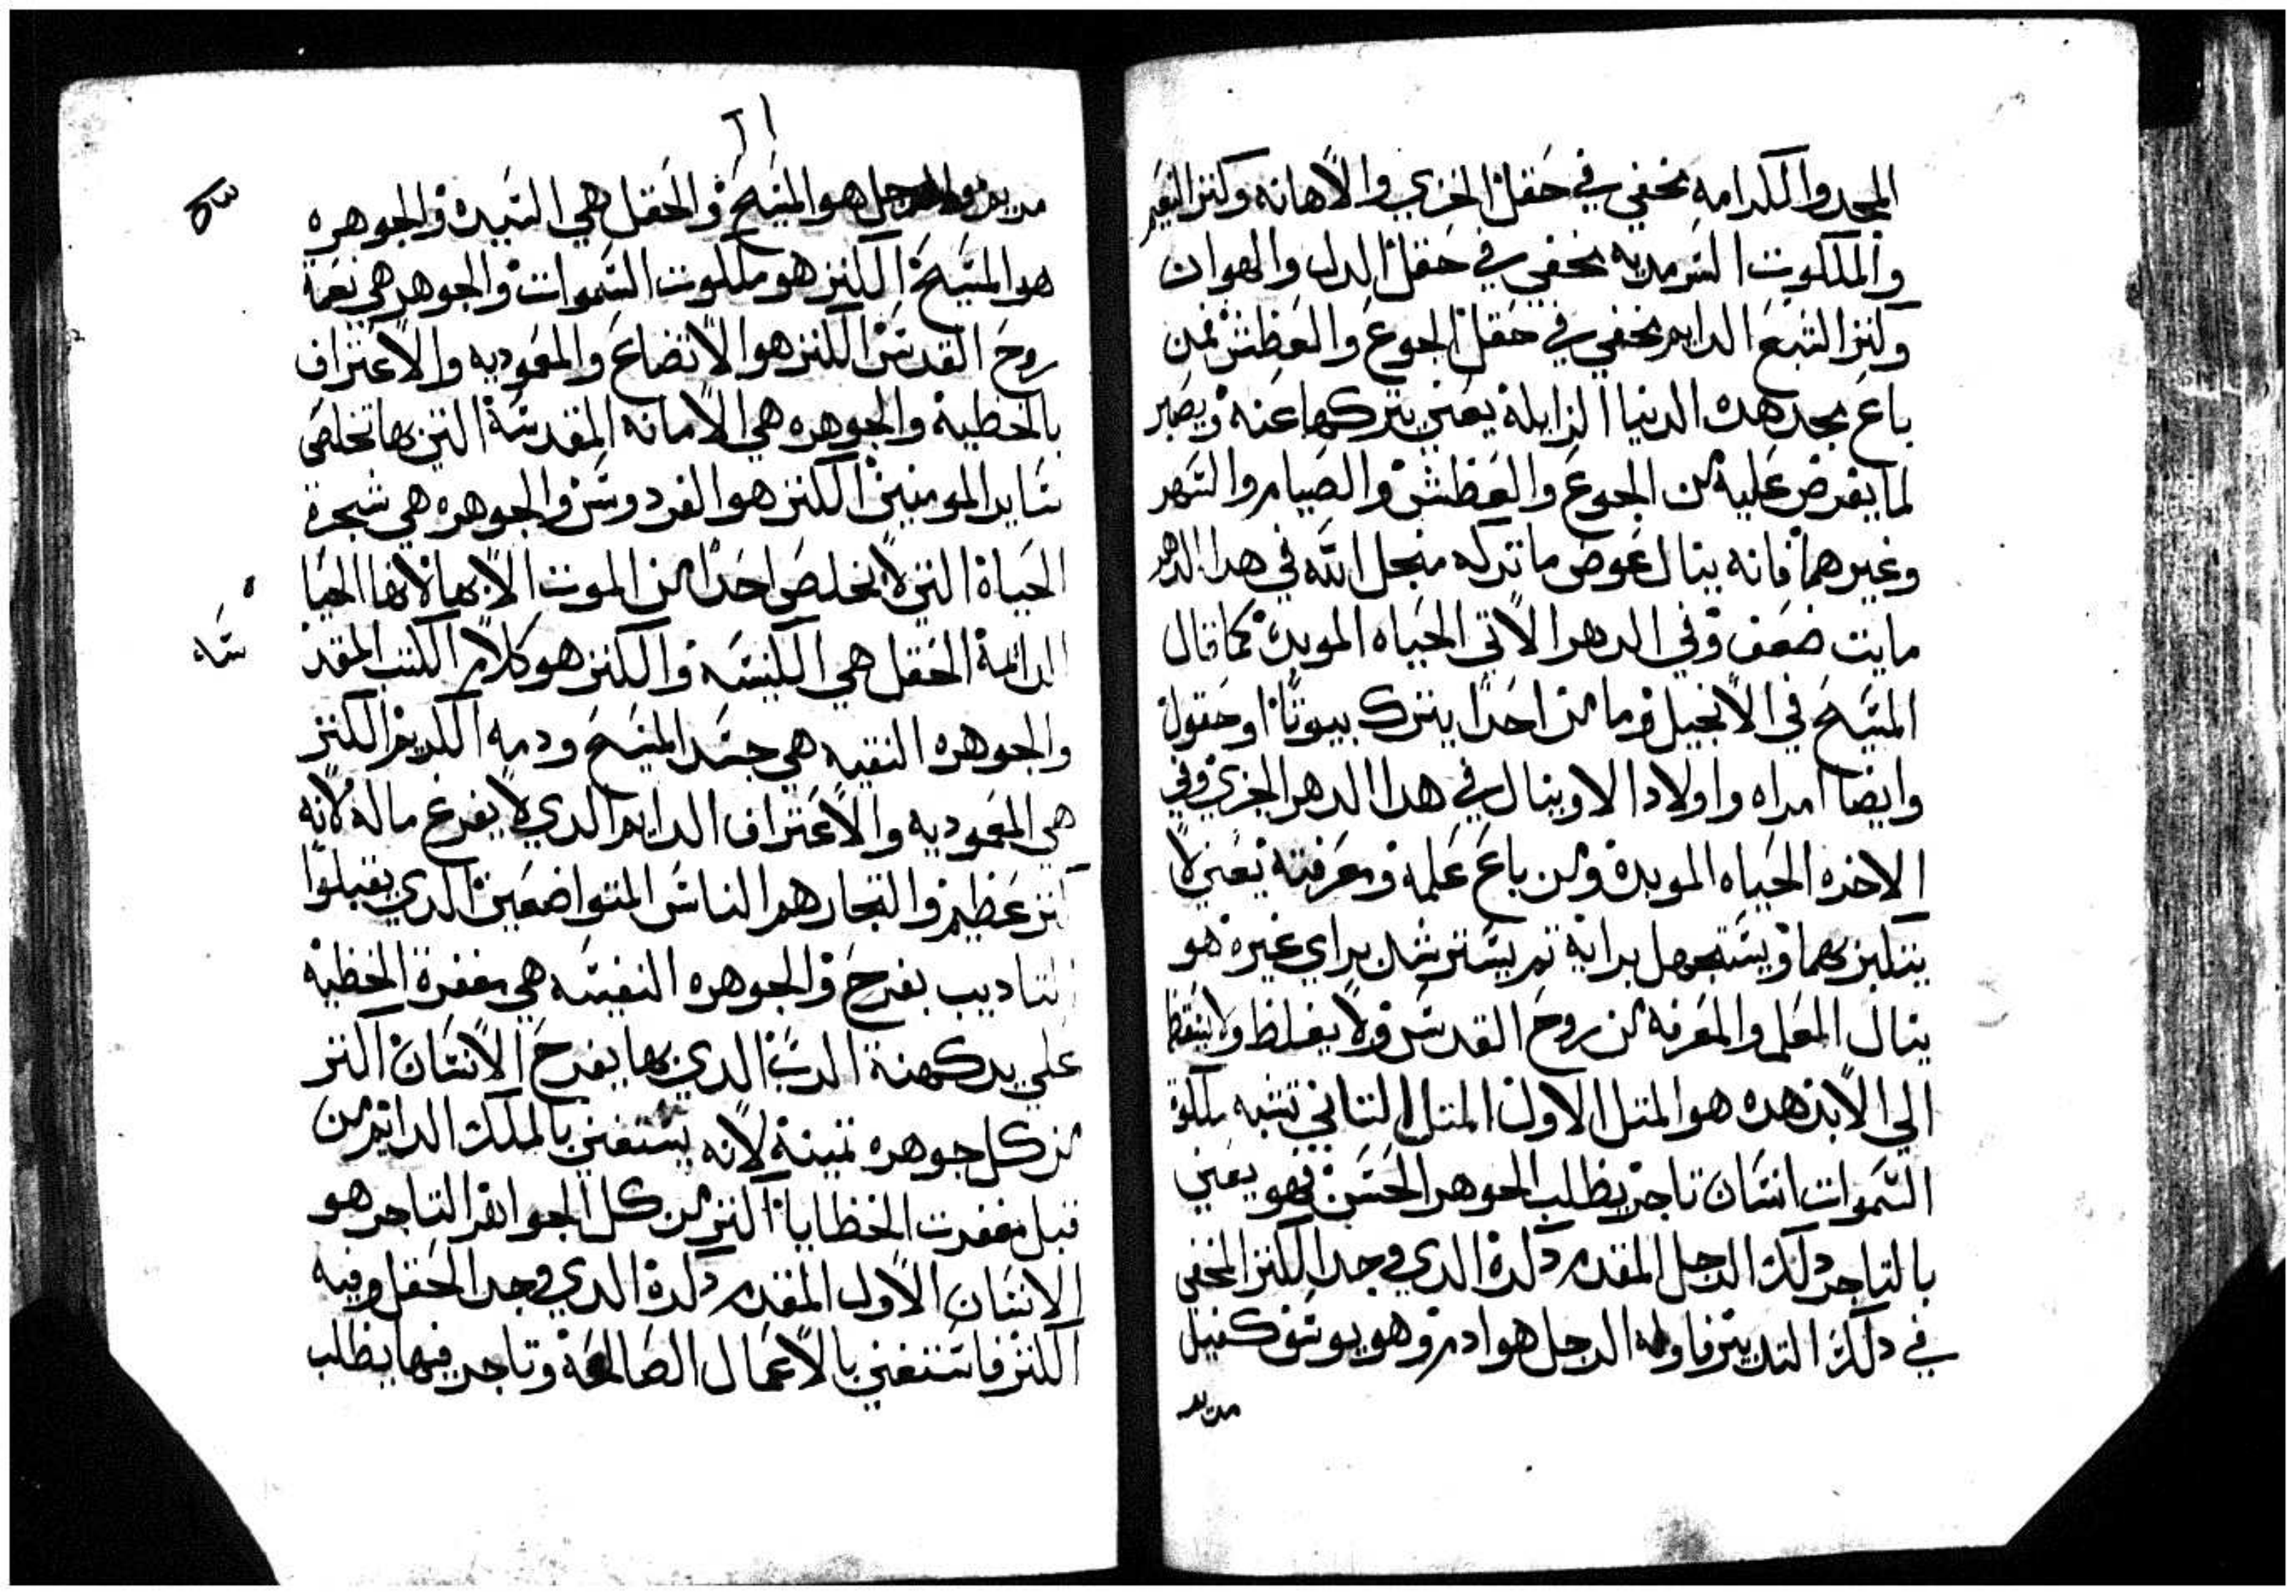 المجد والكرامه مخفي في حقل الخزي والاهانه وكنز النعيم
والملكوت السرمديه مخفي في حقل الدل والهوان
وكنز الشبع الدايم مخفي في حقل الجوع والعطش فمن
باع مجد هده الدنيا الزايلة يعني يتركها عنه ويصبر
لما يفرض عليه من الجوع والعطش والصيام والسهر
وغيرهما فانه ينال عوض ما تركه منجل الله في هدا الدهر
مايت ضعف وفي الدهر الاتي الحياه الموبدة كما قال
المسيح في الانجيل وما من احدا يترك بيوتا او حقول
وايضا امراه واولادا الا وينال في هدا الدهر الجزي وفي
الاخره الحياه الموبدة ومن باع علمه ومعرفته يعني لا
يتكبر بهما ويستجهل برايه تم يسترشد براي غيره هو
ينال العلم والمعرفه من روح القدس ولا يغلط ولا يسقط
الي الابد هده هو المتل الاول المتل التاني تشبه ملكوة
السموات انسان تاجر يطلب الجوهر الحسن فهو يعني
بالتاجر دلك الرجل المقدم دكرة الدي وجد الكنز المخفي
في دلك التدبير فاوله الرجل هو ادم وهو يوسف كفيل
مريم
٢١
مريم والرجل هو المسيح والحقل هي السيدة والجوهره
هو المسيح الكنز هو ملكوت السموات والجوهر هي نعمة
روح القدس الكنز هو الاتضاع والمعموديه والاعتراف
بالخطية والجوهره هي الامانه المقدسة التي بها تخلص
ساير المومنين الكنز هو الفردوس والجوهره هي شجرة
الحياة التي لا يخلص احدا من الموت الا بها لانها الحيا
الدائمة الحقل هي الكنيسه والكنز هو كلام الكتب المقد
والجوهره النقيه هي جسد المسيح ودمه الكريم الكنز
هي المعموديه والاعتراف الدايم الدي لا يفرغ ماله لانه
كنز عظيم والتجار هم الناس المتواضعين الدي يقبلوا
التاديب بفرح والجوهره النفيسه هي مغفرة الخطيه
علي يد كهنة الرب الدي بها يفرح الانسان اكتر
من كل جوهره تمينة لانه يستغني بالملك الدايم من
قبل مغفرت الخطايا اكتر من كل الجواهر التاجر هو
الانسان الاول المقدم دكرة الدي وجد الحقل وفيه
الكنز فاستغني بالاعمال الصالحة وتاجر فيها يطلب